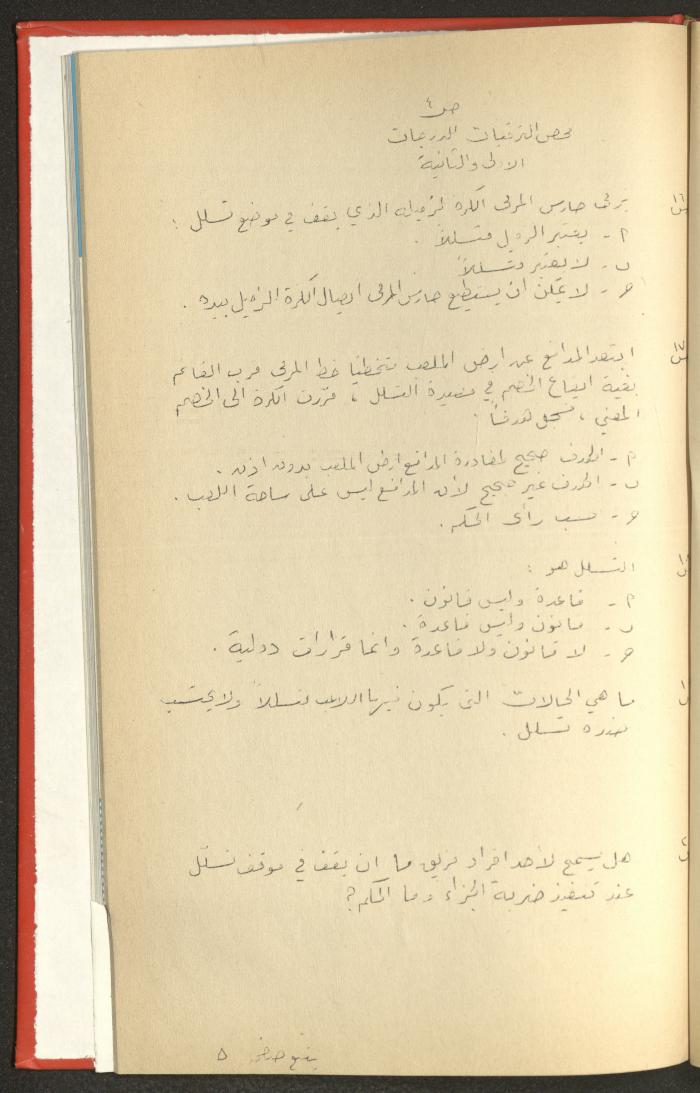 ص ٤
فحص الترقيات الدرجات
الاولى والثانية
س ١٦ يرمي حارس المرمى الكرة لزميله الذي يقف في موضع تسلل :
٢ - يعتبر الزميل متسللاً .
ب - لا يعتبر متسللاً
حـ - لا يمكن ان يستطيع حارس المرمى ايصال الكرة للزميل بيده .
س ١٧ ابتعد المدافع عن ارض الملعب متخطيا خط المرمى قرب القائم
بغية ايقاع الخصم في مصيدة التسلل ، مررت الكرة الى الخصم
المعني ، فسجل هدفاً
٢ - الهدف صحيح لمغادرة المدافع ارض الملعب بدون اذن .
ب - الهدف غير صحيح لأن المدافع ليس على ساحة اللعب .
حـ - حسب رأي الحكم .
التسلل هو :
٢ - قاعدة وليس قانون .
ب - قانون وليس قاعدة .
حـ - لا قانون ولا قاعدة وانما قرارات دولية .
ما هي الحالات التي يكون فيها اللاعب متسللاً ولا يحتسب
ضده تسلل .
هل يسمح لأحد افراد فريق ما ان يقف في موقف تسلل
عند تنفيذ ضربة الجزاء وما الحكم ؟
يتبع صفحة ٥